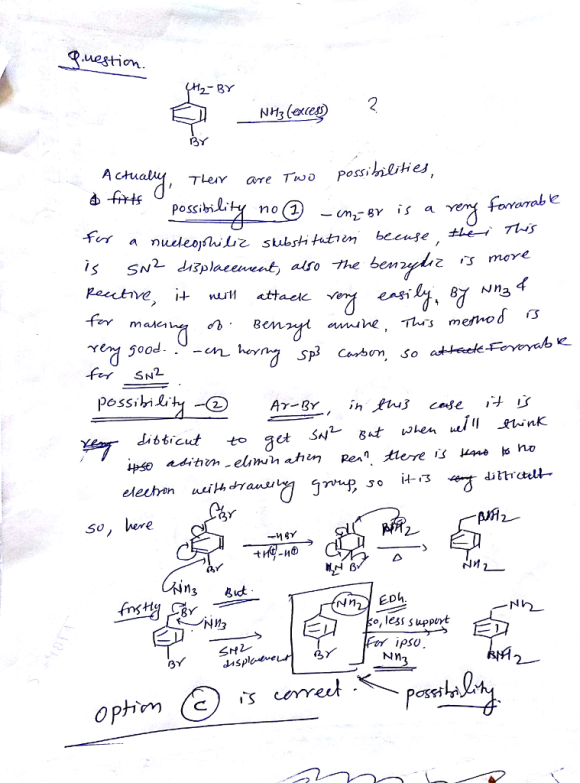 Question.
CH2-Br
NH3 (excess) ?
Br
Actually, Their are Two possibilities,
firts
possibility no ① -CH2-Br is a very favarable
for a nucleophilic substitution becuse, the i This
is SN2 displacement, also the benzylic is more
Reactive, it will attack very easily, By NH3 &
for making of Benzyl amine, This method is
very good. . -CH having sp3 Carbon, so attack Favorable
for SN2
possibility -② Ar-Br, in this case it is
very difficut to get SN2 But when we'll think
ipso adition-elimination Rean. there is no
electron withdrawing group, so it is very difficult
so, here
Br
-HBr
NH2
Δ
NH2
Br
+H⊕, -H⊕
H2N Br
NH2
NH3 But.
firstly Br
NH3
NH2
EDG.
so, less support
NH2
SN2
displacement
For ipso.
NH3
Br
Br
NH2
option Ⓒ is correct. possibility.